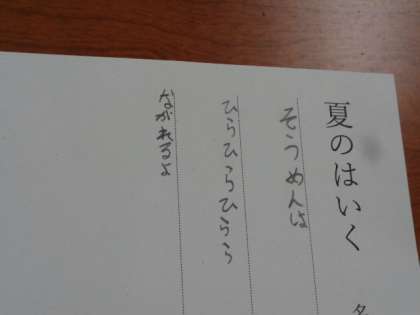 夏のはいく
そうめんは
ひらひらひらら
ながれるよ